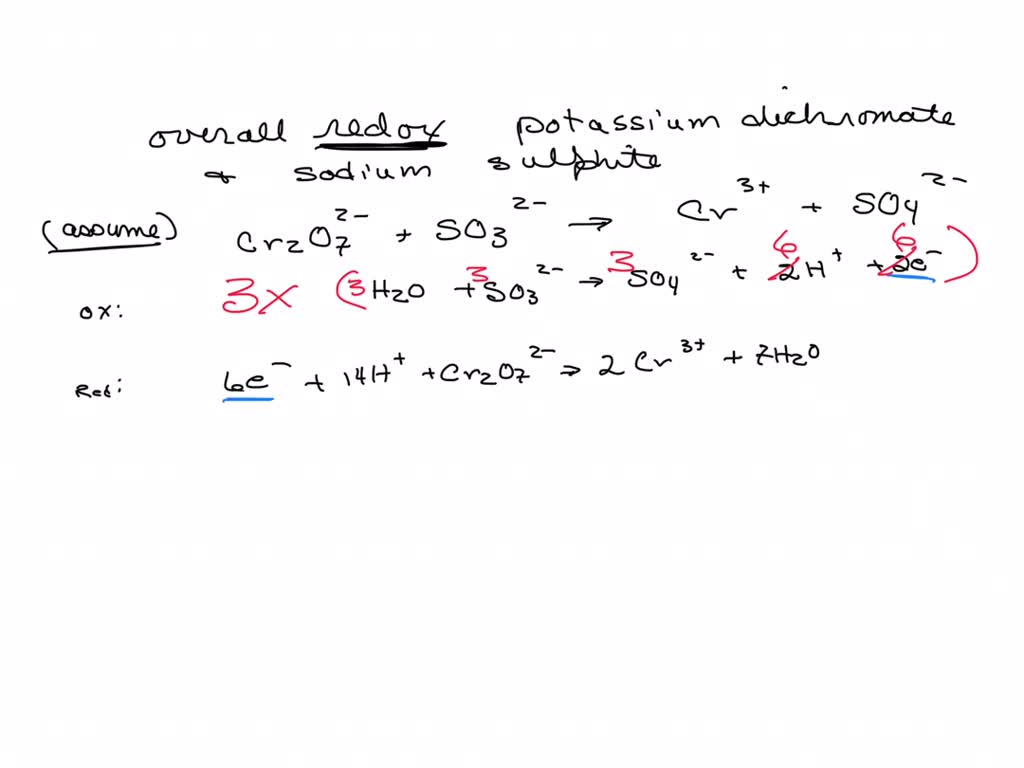 overall redox potassium dichromate
& sodium sulphite
(assume) Cr2O7 2- + SO3 2- → Cr 3+ + SO4 2-
ox: 3x (3H2O + 3SO3 2- → 3SO4 2- + 6 2H+ + 6 2e-)
Red: 6e- + 14H+ + Cr2O7 2- → 2Cr 3+ + 7H2O